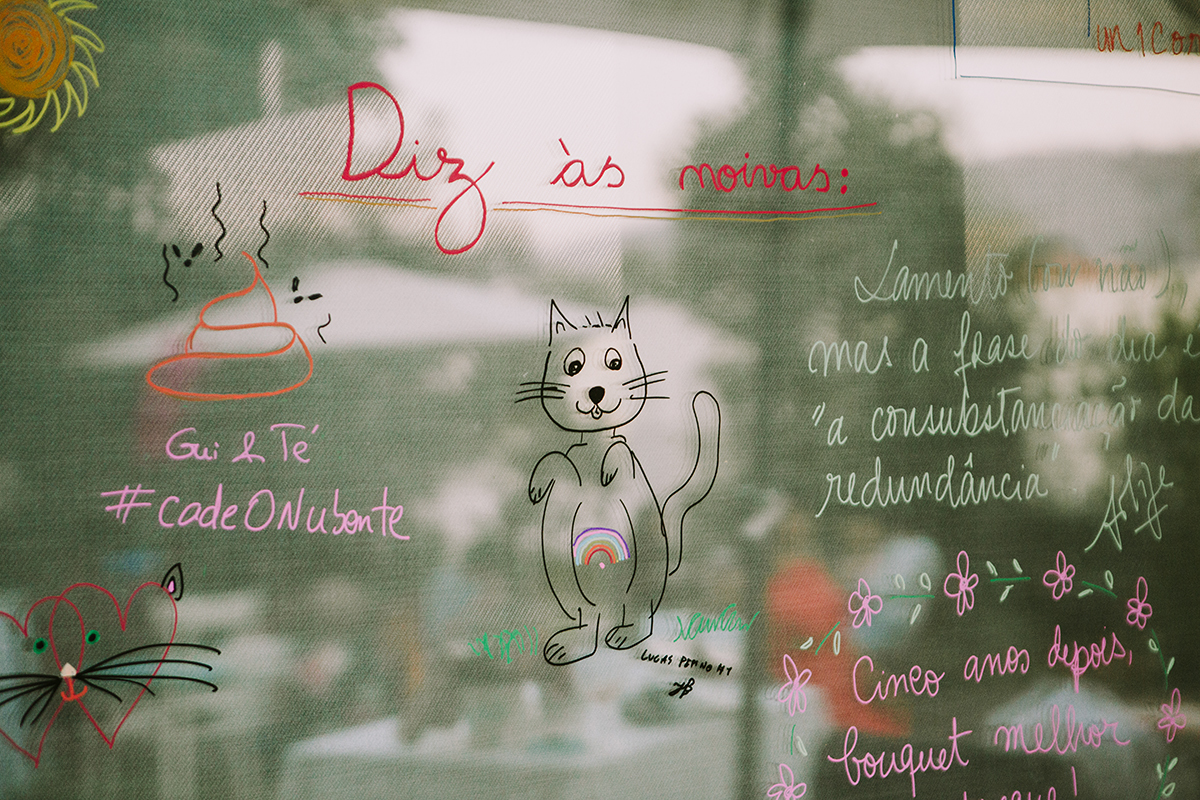 Diz às noivas:
Gui & Té
#cadeONubente
Lamento (ou não),
mas a frase do dia é
"a consubstanciação da
redundância"
LUCAS
Cinco anos depois,
bouquet melhor